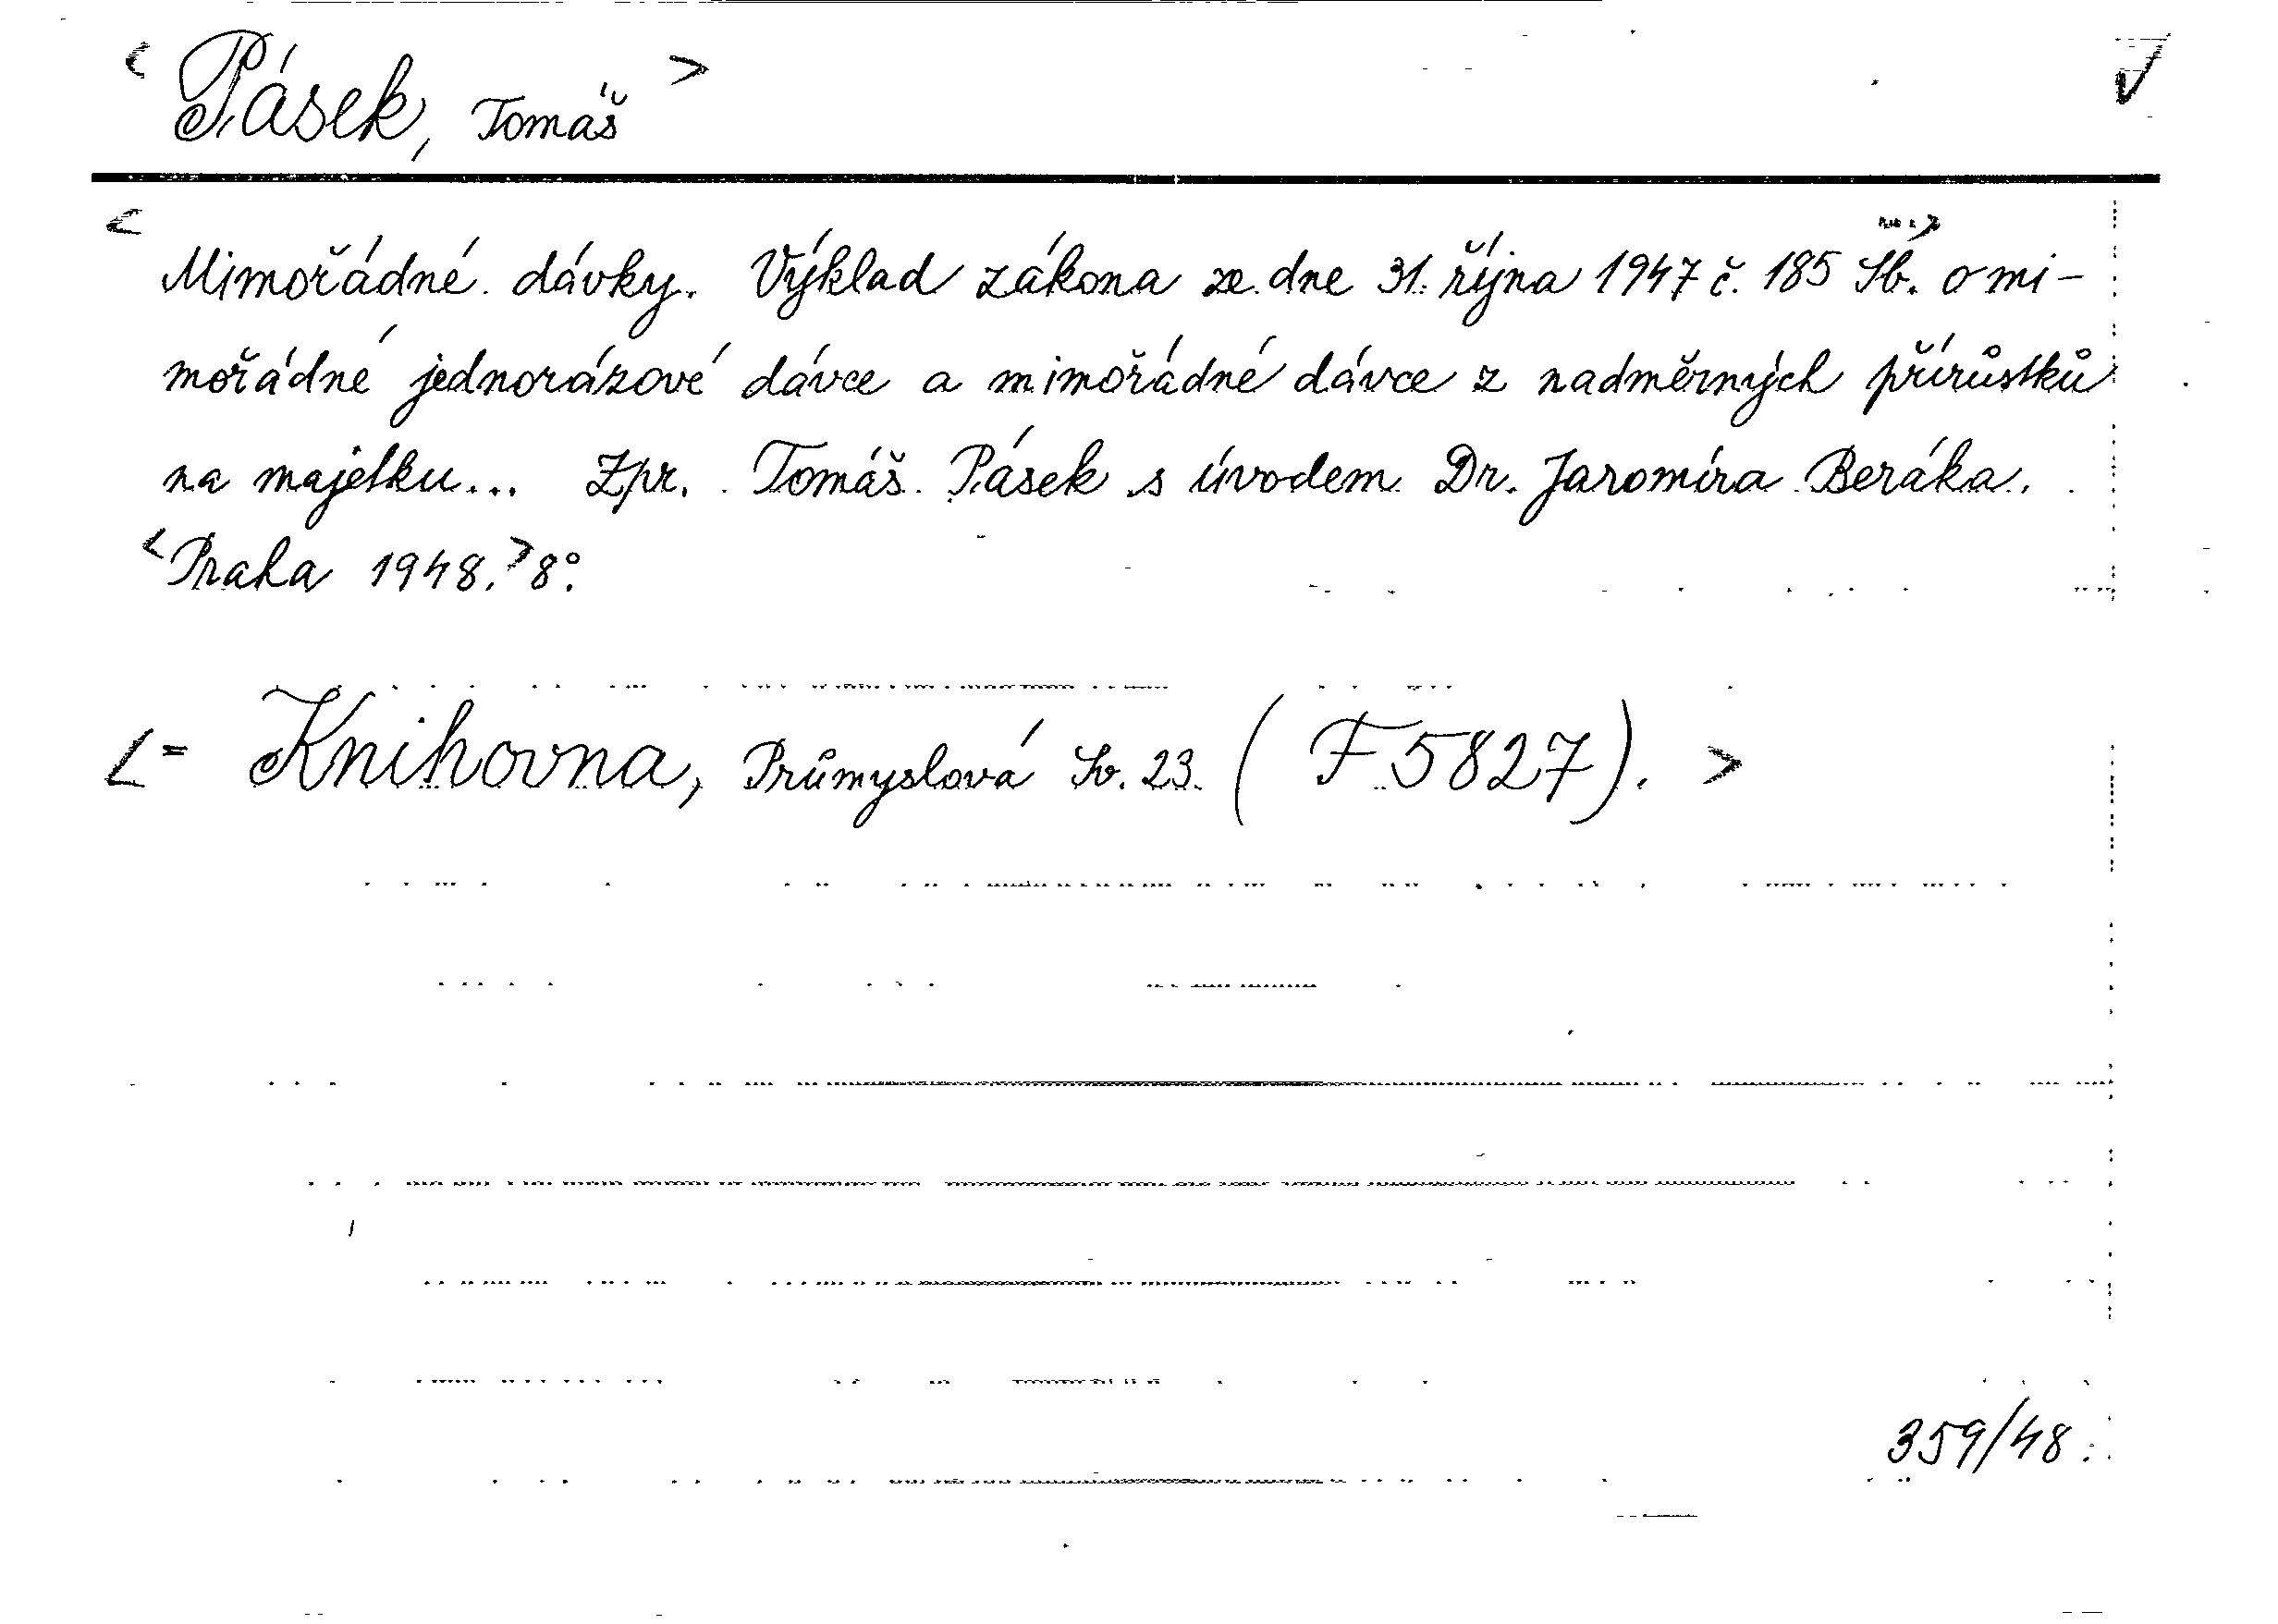 < Pásek, Tomáš > √
< Mimořádné dávky. Výklad zákona ze dne 31. října 1947 č. 185 Sb. ...> o mi-
mořádné jednorázové dávce a mimořádné dávce z nadměrných přírůstků
na majetku... Zpr. Tomáš Pásek s úvodem Dr. Jaromíra Beráka.
<Praha 1948.> 8°.
<= Knihovna, Průmyslová Sv. 23. (F 5827). >
359/48.